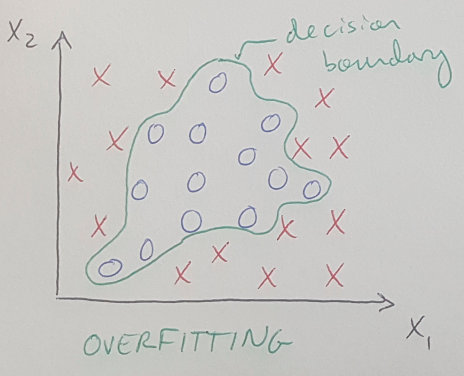 X₂
decision
boundary
X₁
OVERFITTING